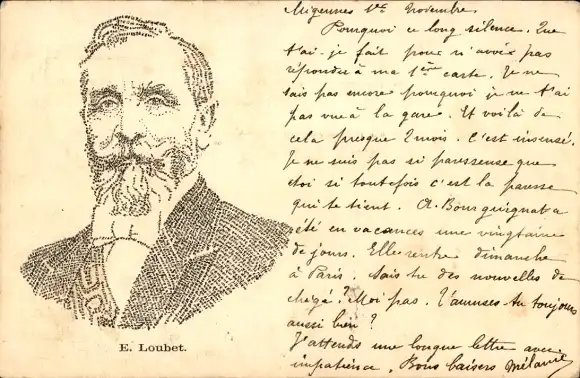 Migennes 1er Novembre.
Pourquoi ce long silence. Que
t'ai-je fait pour n'avoir pas
répondu à ma 1ère carte. Je ne
sais pas encore pourquoi je ne t'ai
pas vue à la gare. Et voilà de
cela presque 2 mois. C'est insensé.
Je ne suis pas si paresseuse que
toi si toutefois c'est la paresse
qui te tient. A. Bourguignat a
été en vacances une vingtaine
de jours. Elle rentre dimanche
à Paris. Sais-tu des nouvelles de
? Moi pas. T'amuses-tu toujours
aussi bien ?
J'attends une longue lettre avec
impatience. Bons baisers Mélanie
E. Loubet.